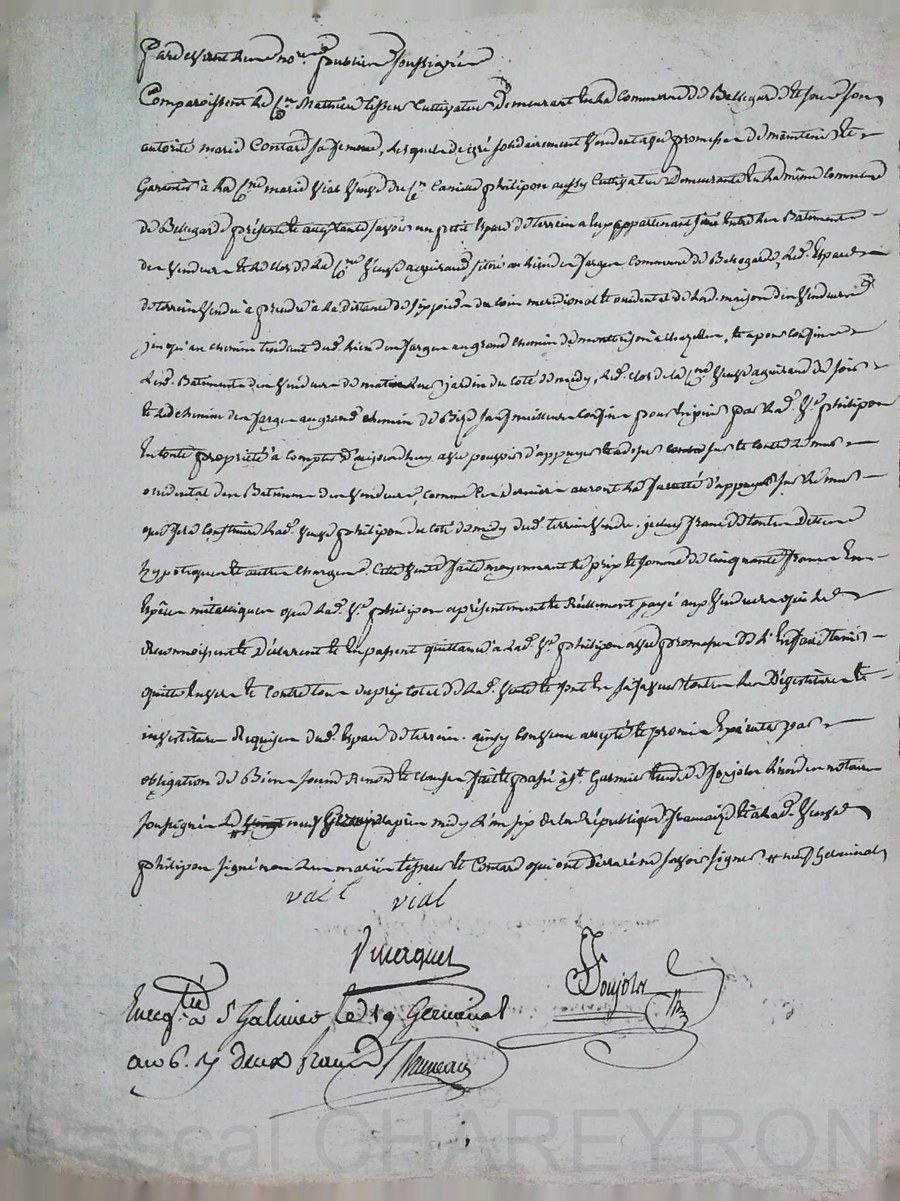 Pardevant le no.re public soussigné
Comparoissent le C.en Mathieu tisseur Cultivateur demeurant en la Commune de Bellegarde et sous son
autorité marie Contard sa femme, lesquels de gré solidairement vendent avec promesse de maintenir et
Garantir à la C.ne marie vial veuve du C.en philipon aussy Cultivateur demeurante en la même Commune
de Bellegarde présente et acceptante, savoir un petit Espace de terrein a eux appartenant situé Entre les Batiments
des vendeurs et le clos de la C.ne veuve acquereuse, situé au lieu des farges Commune de Bellegarde, led. Espace
de terrein vendu à prendre à la distance de six pieds du coin meridional et occidental de lad. maison des vendeurs
jusqu'au chemin tendant dud. lieu des farges au grand chemin de montbrison à chazelles, et a pour Confins
les d. Batiments des vendeurs de matin, leurs jardin du coté de midy, led. clos de la C.ne veuve acquereuse de soir
et le chemin des farges au grand chemin de Bize sauf meilleurs Confins pour En jouir par lad. V.e philipon
En toute propriété à compter d'aujourdhuy avec pouvoir d'appuyer et adosser contre le mur
occidental des Batimens des vendeurs, comme Ces derniers auront la faculté d'appuyer sur le mur
que fera Construire lad. veuve philipon du coté de midy dud. terrein vendu. franc de toutes dettes
hypotèques et autres Charges. Cette vente faite moyennant le prix et somme de Cinquante francs En
Espèces métalliques que lad. V.e philipon a présentement et Réellement payé aux vendeurs qui le
Reconnoissent et déclarent et En passent quittance à lad. V.e philipon avec promesse de l'En faire tenir
quitte Envers et Contre tous du prix total de lad. vente et sont En sa faveur toutes les
investitures Requises dud. Espace de terrein. ainsy Convenu accepté et promis Exécuter par
obligation de Biens soumis. Renon.ce et clauses fait et passé à S.t Garmier Etude de Soujolar l'un des notaires
soussignés le neuf après midy l'an six de la République française et a lad. veuve
philipon signé non les mariés tisseur et Contard qui ont déclaré ne savoir signer # neuf Germinal
vail vial
Soujolar
Enreg.tré à S Galmier le 19 Germinal
an 6. R deux francs
Pascal CHAREYRON